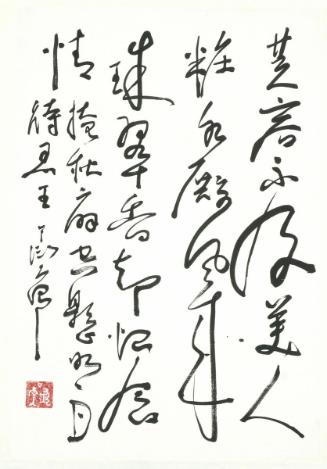 芙容不及美人
粧水殿風來
珠翠香却恨含
情掩秋扇空懸明月
待君王 丁衍庸